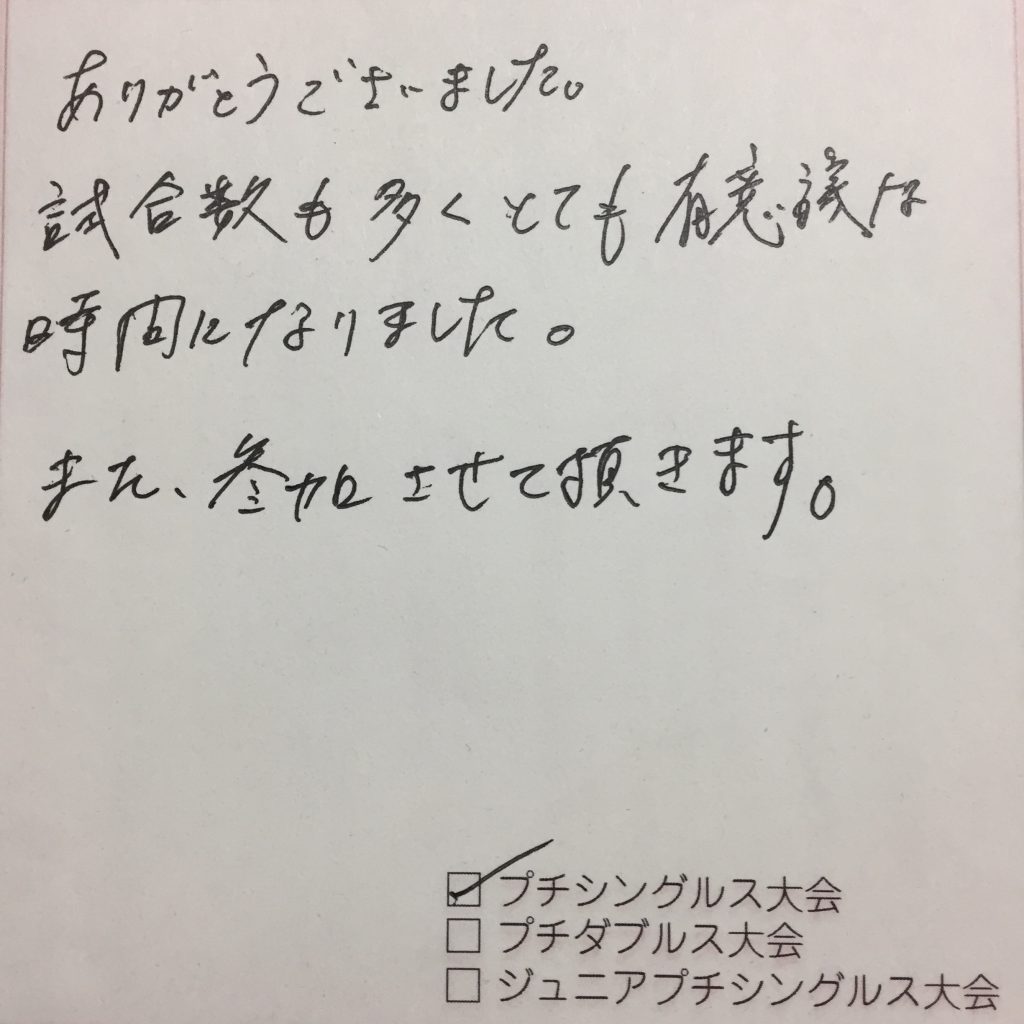 ありがとうございました。
試合数も多くとても有意義な
時間になりました。
また、参加させて頂きます。
☑プチシングルス大会
☐プチダブルス大会
☐ジュニアプチシングルス大会